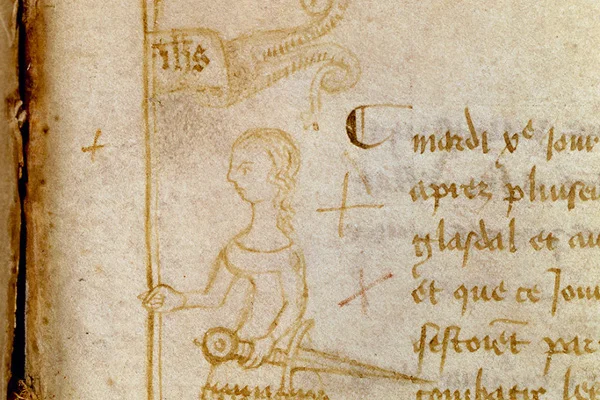 ihs
mardi xᵉ jour
aprez pluiseu
glasdal et au
et que ce jour
sestoiēt par
combatre les